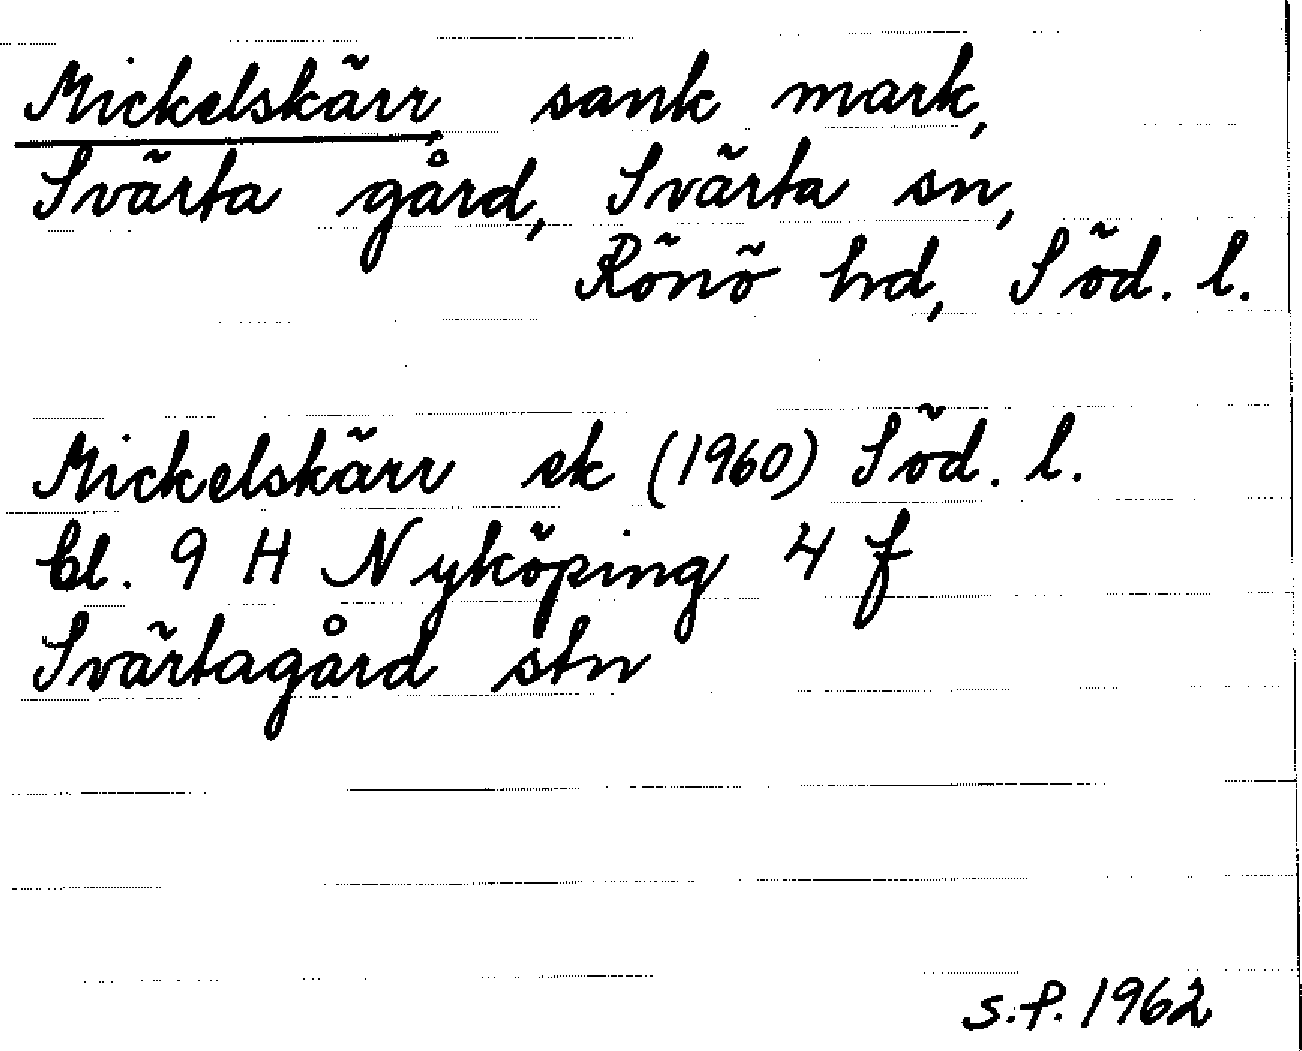 Mickelskärr, sank mark,
Svärta gård, Svärta sn,
Rönö hd, Söd. l.
Mickelskärr ek (1960) Söd. l.
bl. 9 H Nyköping 4 f
Svärtagård stn
S.P. 1962